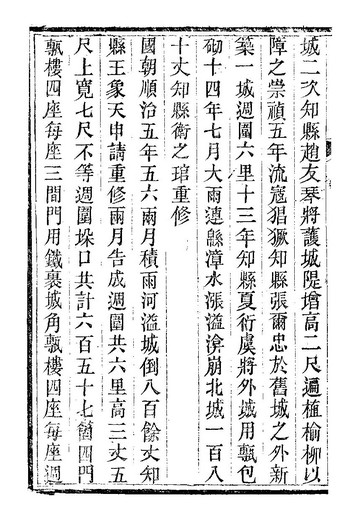 城二次知縣趙友琴將護城隄增高二尺遍植榆柳以
障之崇禎五年流寇猖獗知縣張爾忠於舊城之外新
築一城週圍六里十三年知縣夏衍虞將外城用甎包
砌十四年七月大雨連緜漳水漲溢渰崩北城一百八
十丈知縣衛之琯重修
國朝順治五年五六兩月積雨河溢城倒八百餘丈知
縣王象天申請重修兩月告成週圍共六里高三丈五
尺上寬七尺不等週圍垜口共計六百五十七箇四門
甎樓四座每座三間門用鐵裹城角甎樓四座每座週